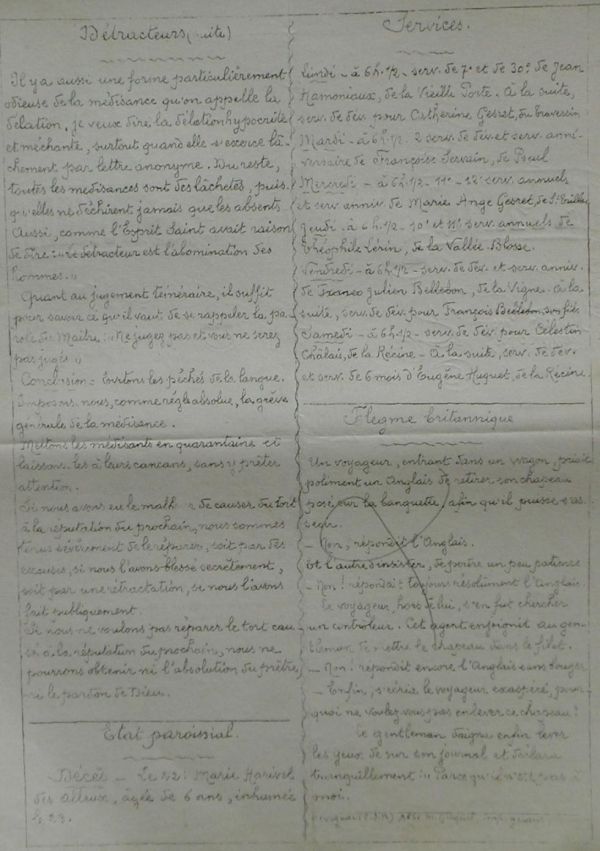 Détracteurs (suite)
Il y a aussi une forme particulièrement
odieuse de la médisance qu'on appelle la
délation, je veux dire la délation hypocrite
et méchante, surtout quand elle s'exerce lâ-
chement par lettre anonyme. Du reste,
toutes les médisances sont des lâchetés, puis-
qu'elles ne déchirent jamais que les absents.
Aussi, comme l'Esprit Saint avait raison
de dire : "Le détracteur est l'abomination des
hommes."
Quant au jugement téméraire, il suffit
pour savoir ce qu'il vaut, de se rappeler la pa-
role du Maître : "Ne jugez pas et vous ne serez
pas jugés"
Conclusion : Évitons les péchés de la langue.
Imposons-nous, comme règle absolue, la grève
générale de la médisance.
Mettons les médisants en quarantaine et
laissons-les à leurs cancans, sans y prêter
attention.
Si nous avons eu le malheur de causer du tort
à la réputation du prochain, nous sommes
tenus sévèrement de le réparer, soit par des
excuses, si nous l'avons blessé secrètement,
soit par une rétractation, si nous l'avons
fait publiquement.
Si nous ne voulons pas réparer le tort cau-
sé à la réputation du prochain, nous ne
pourrons obtenir ni l'absolution du prêtre,
ni le pardon de Dieu.
Etat paroissial.
Décès - Le 22 : Marie Harivel
des Alleux, âgée de 6 ans, inhumée
le 23.
Services.
Lundi - à 6h.1/2 - serv. de 7e et de 30e de Jean
Hamoniaux, de la Vieille Porte. À la suite,
serv. de dév. pour Catherine Gesret, du
Mardi - à 6h.1/2. 2 serv. de dév. et serv. anni-
versaire de Françoise Jervain, de
Mercredi - à 6h.1/2 - 11e - 12e serv. annuels
et serv. anniv. de Marie Ange Gesret, de
Jeudi - à 6h.1/2 - 10e et 11e serv. annuels de
Théophile Vérin, de la Vallée Blosse.
Vendredi - à 6h.1/2 - serv. de dév. et serv. anniv.
de Franco Julien Bellebon, de la Vigne. À la
suite, serv. de dév. pour François Bellebon, son fils.
Samedi - à 6h.1/2 - serv. de dév. pour Célestin
Chalais, de la Récine - À la suite, serv. de dév.
et serv. de 6 mois d'Eugène Huguet, de la Récine.
Flegme britannique
Un voyageur, entrant dans un wagon, priait
poliment un Anglais de retirer son chapeau
posé sur la banquette, afin qu'il puisse s'as-
seoir.
- Non, répondit l'Anglais.
Et l'autre d'insister, de perdre un peu patience
- Non ! répondait toujours résolument l'Anglais.
Le voyageur, hors de lui, s'en fut chercher
un contrôleur. Cet agent enjoignit au gen-
tleman de mettre le chapeau dans le filet.
- Non ! répondit encore l'Anglais sans bouger
- Enfin, s'écria le voyageur exaspéré, pour-
quoi ne voulez-vous pas enlever ce chapeau ?
Le gentleman daigna enfin lever
les yeux de sur son journal et déclara
tranquillement : "Parce qu'il n'est pas à
moi.